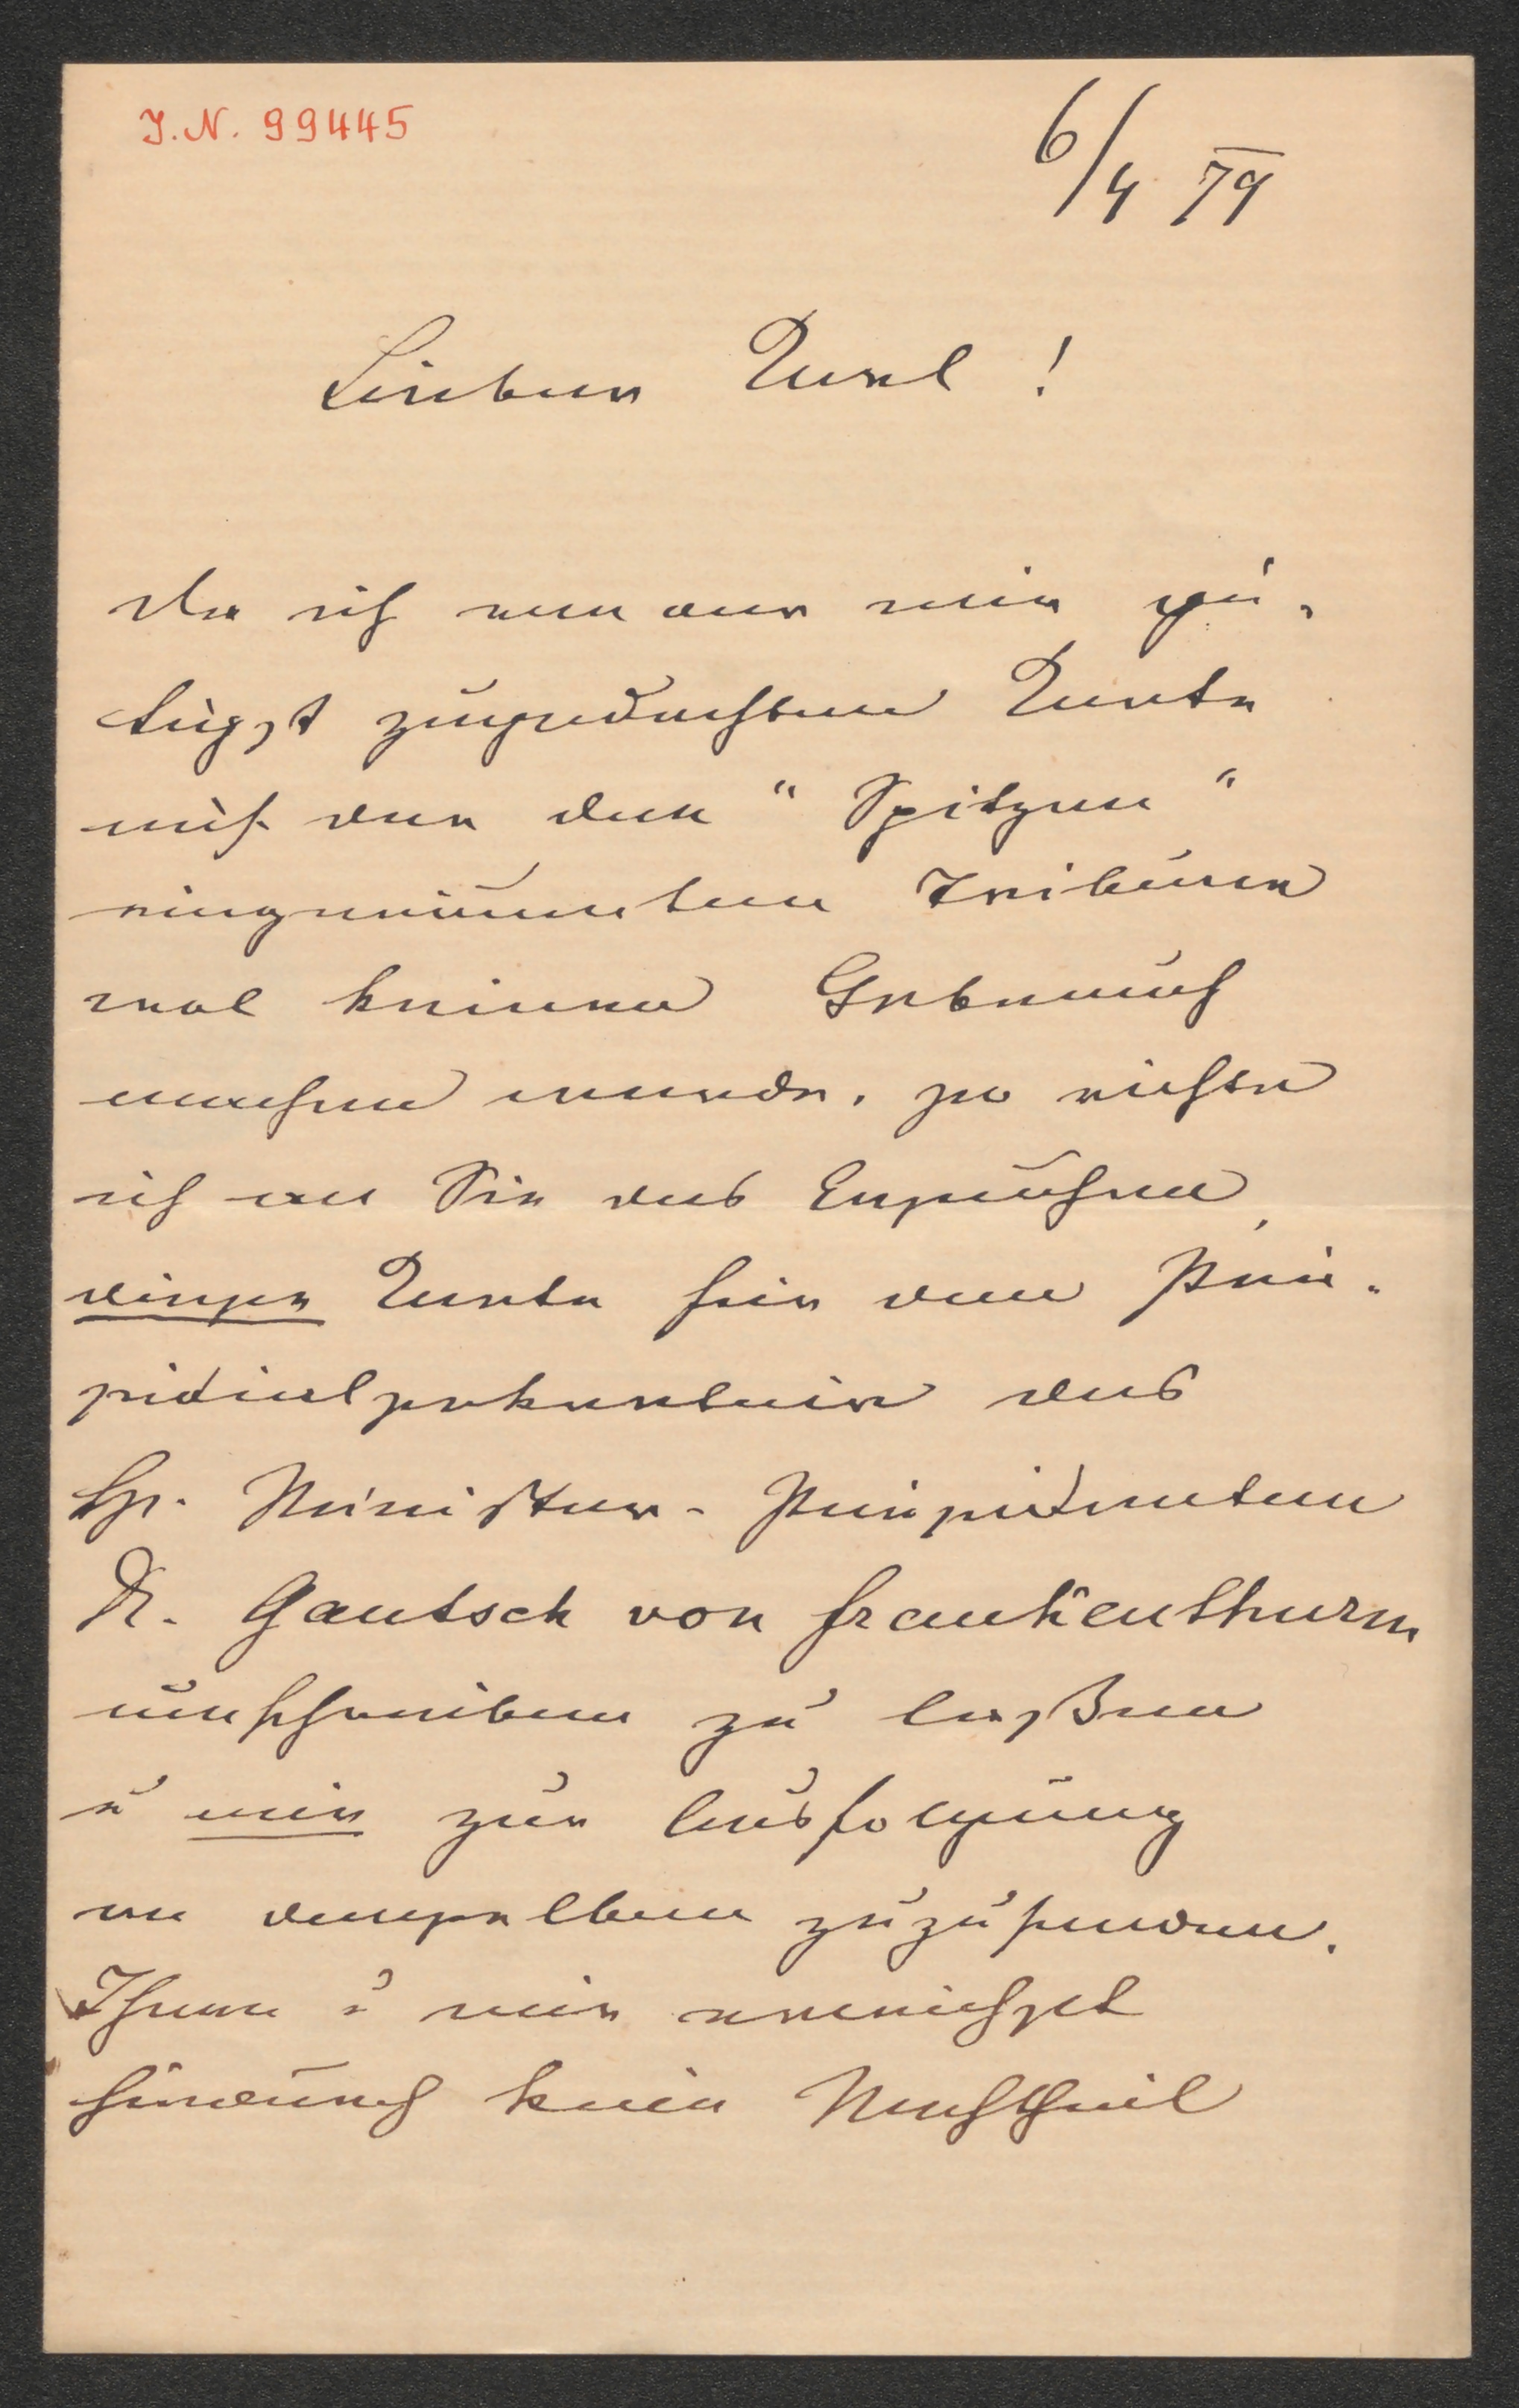 I.N. 99445
6/4 79
Lieber Karl!
Da ich von der mir gü-
tigst zugedachten Karte
auf der den "Spitzen"
eingeräumten Tribüne
wol keinen Gebrauch
machen werde, so richte
ich an Sie das Ersuchen,
diese Karte für den Prä-
sidialsekretair des
H. Minister-Präsidenten
Dr. Gautsch von Frankenthurm
umschreiben zu laßen
u mir zur Ausfolgung
an denselben zuzusenden.
Ihnen u mir erwächst
hiedurch kein Nachtheil